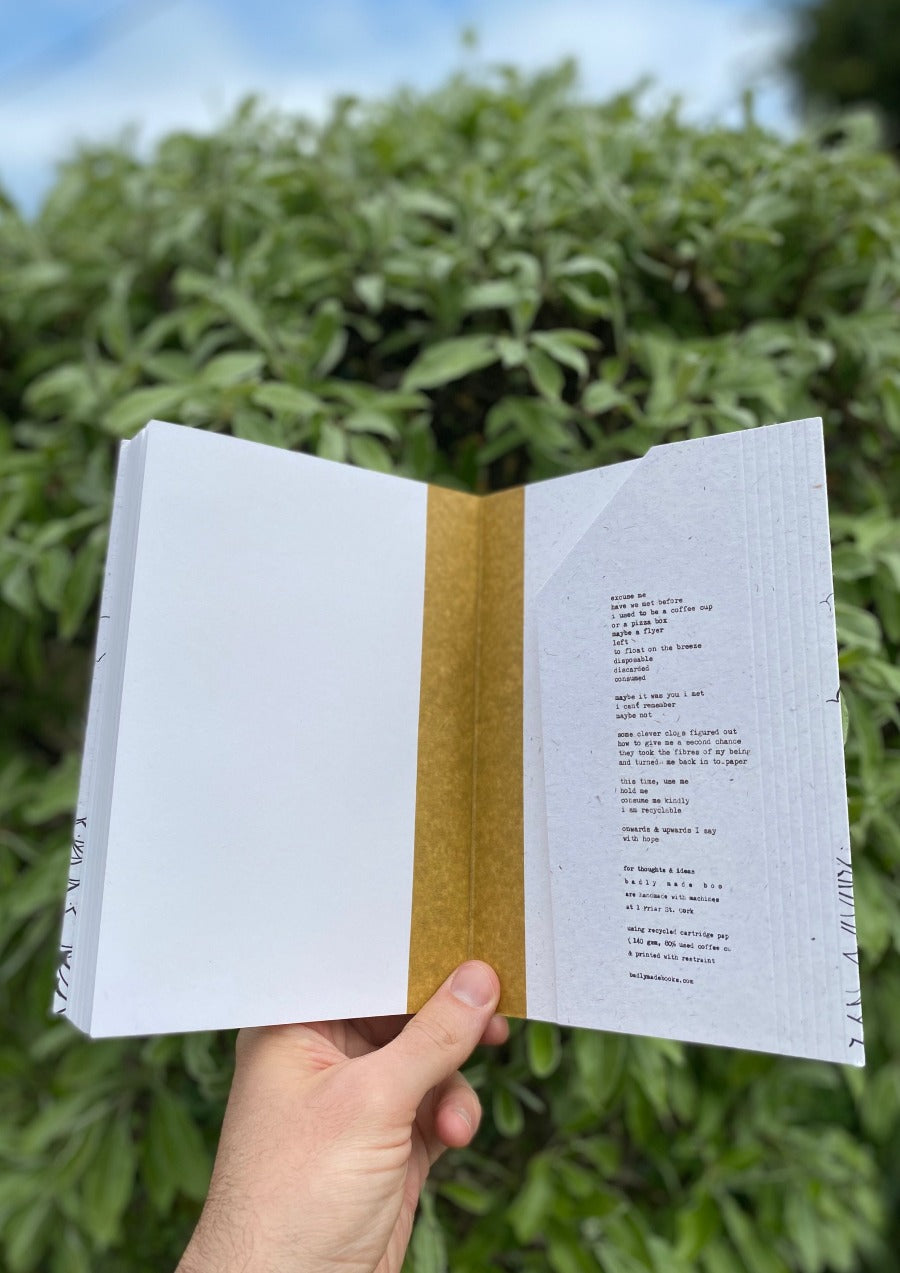 excuse me
have we met before
i used to be a coffee cup
or a pizza box
maybe a flyer
left
to float on the breeze
disposable
discarded
consumed
maybe it was you i met
i cant remember
maybe not
some clever clogs figured out
how to give me a second chance
they took the fibres of my being
and turned me back in to paper
this time, use me
hold me
consume me kindly
i am recyclable
onwards & upwards I say
with hope
for thoughts & ideas
badly made boo
are handmade with machines
at 1 Friar St. Cork
using recycled cartridge pap
(140 gsm, 60% used coffee cu
& printed with restraint
badlymadebooks.com